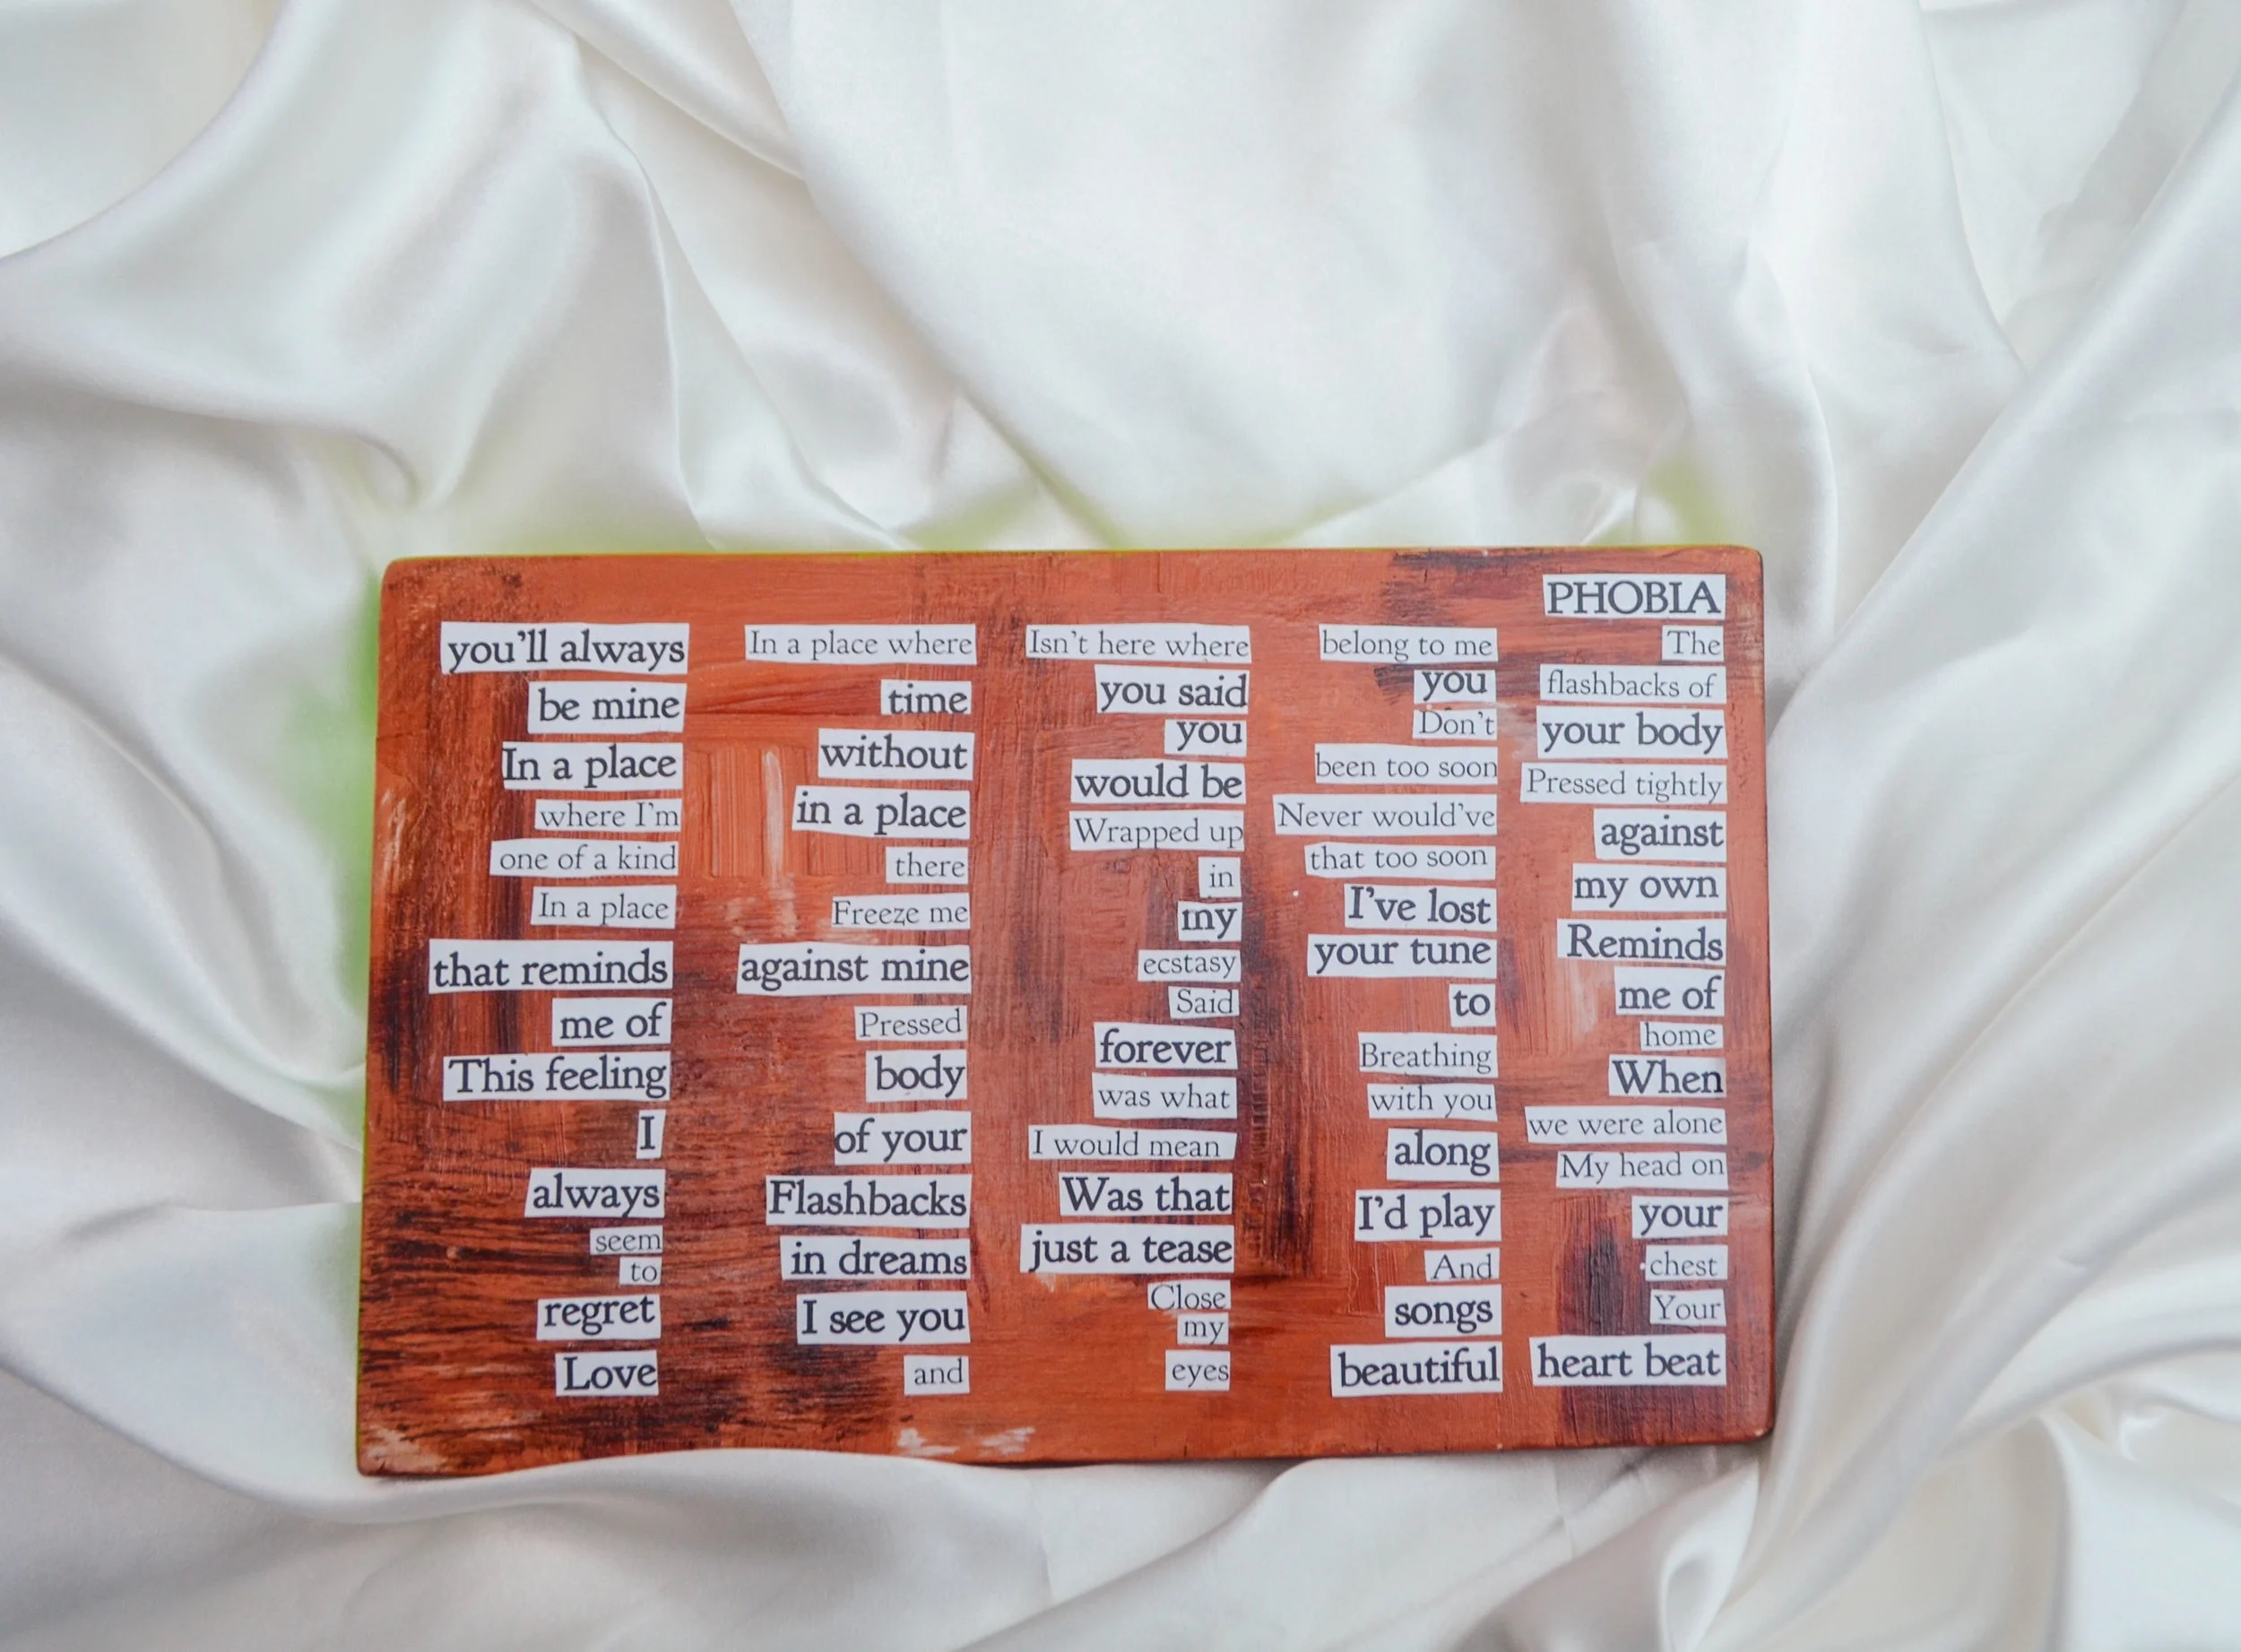 PHOBIA
The
flashbacks of
your body
Pressed tightly
against
my own
Reminds
me of
home
When
we were alone
My head on
your
chest
Your
heart beat
beautiful
songs
And
I'd play
along
with you
Breathing
to
your tune
I've lost
that too soon
Never would've
been too soon
Don't
you
belong to me
Isn't here where
you said
you
would be
Wrapped up
in
my
ecstasy
Said
forever
was what
I would mean
Was that
just a tease
Close
my
eyes
and
I see you
in dreams
Flashbacks
of your
body
Pressed
against mine
Freeze me
there
in a place
without
time
In a place where
you'll always
be mine
In a place
where I'm
one of a kind
In a place
that reminds
me of
This feeling
I
always
seem
to
regret
Love